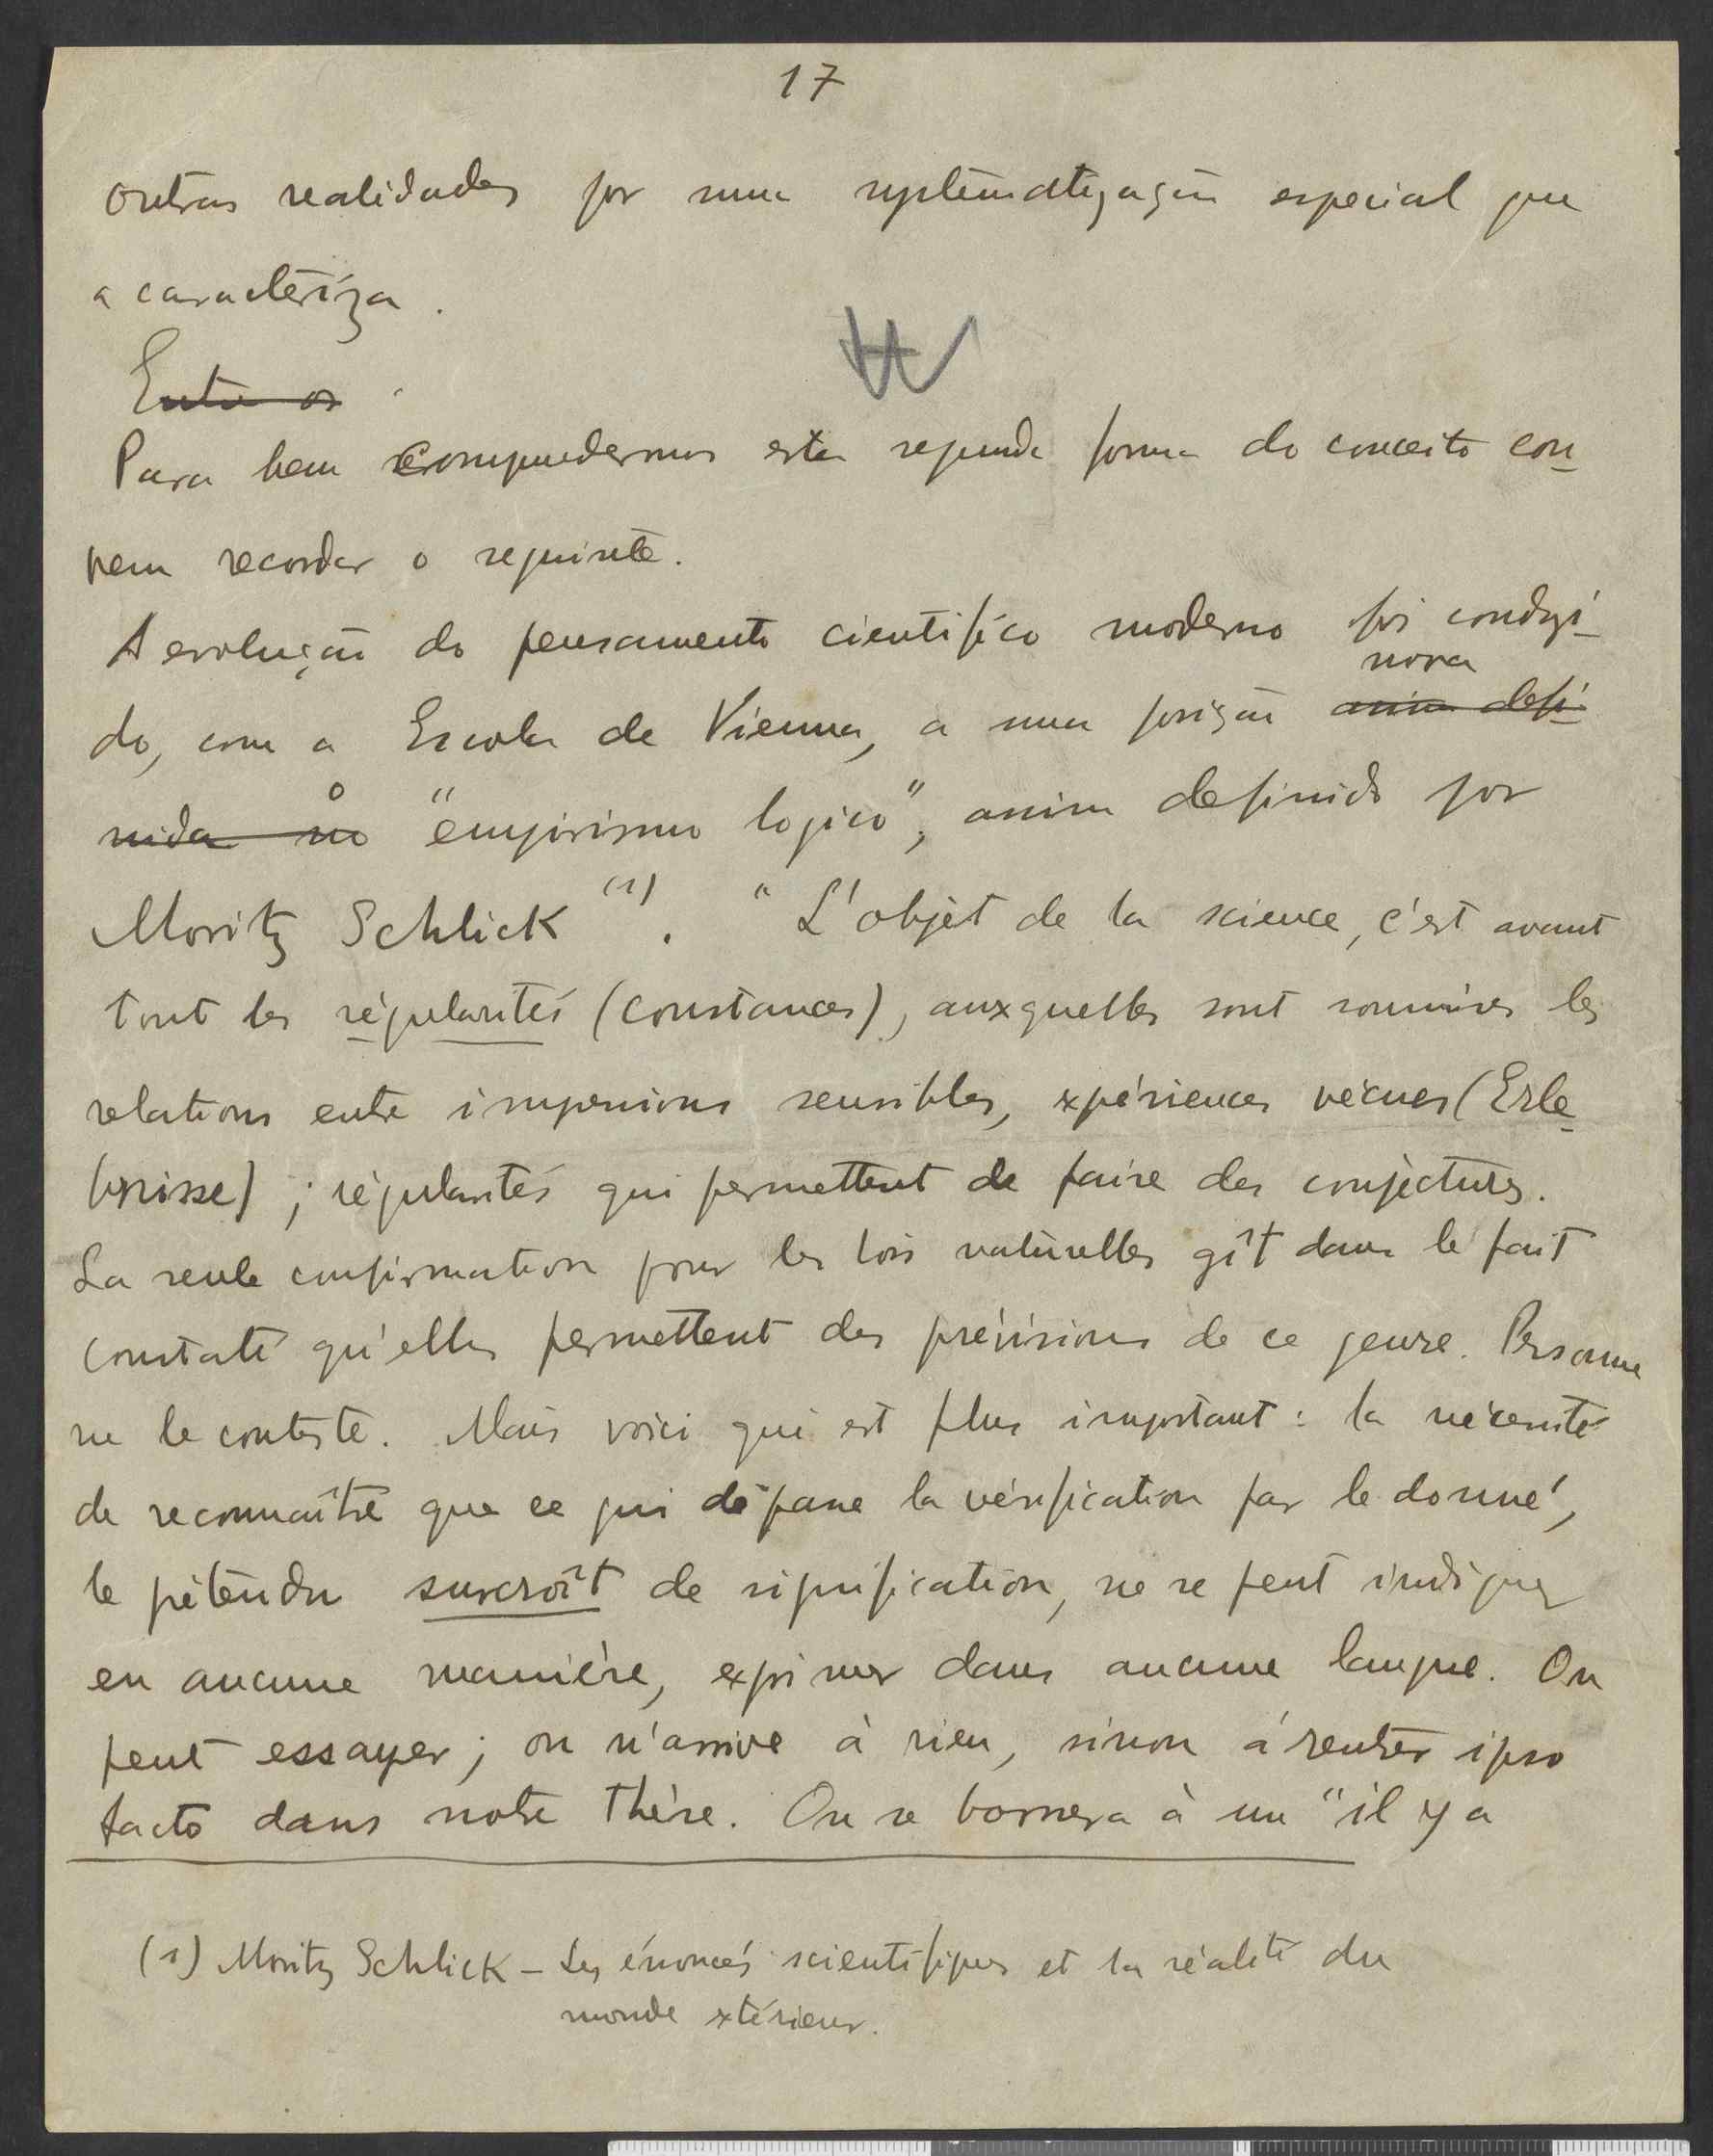 17
outras realidades por uma systematização especial que
a caracteriza.
Entre os
Para bem comprehendermos esta segunda forma do conceito con-
vem recordar o seguinte.
A evolução do pensamento cientifico moderno foi condzi-
do, com a Escola de Vienna, a uma posição assim defi- nova
nida no o "empirismo logico", assim definido por
Moritz Schlick (1). "L'objèt de la science, c'est avant
tout les régularités (constances), auxquelles sont soumises les
relations entre impressions sensibles, expériences vécues (Erle-
bnisse); régularités qui permettent de faire des conjectures.
La seule confirmation pour les lois naturelles gît dans le fait
constaté qu'elles permettent des prévisions de ce genre. Personne
ne le conteste. Mais voici qui est plus important: la nécessité
de reconnaître que ce qui dépasse la vérification par le donné,
le prétendu surcroît de signification, ne se peut indiquer
en aucune manière, exprimer dans aucune langue. On
peut essayer; on n'arrive à rien, sinon à rentrer ipso
facto dans notre thèse. On se bornera à un "il y a
(1) Moritz Schlick - Les énoncés scientifiques et la réalité du
monde extérieur.